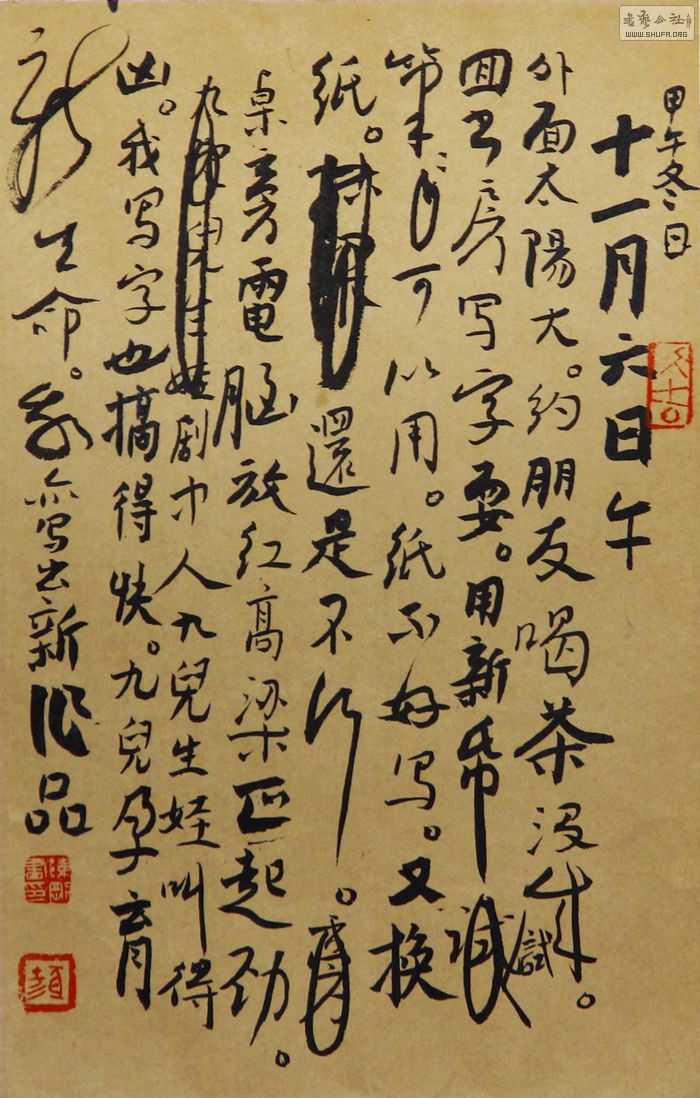 甲午冬日
十一月六日午
外面太陽大。约朋友喝茶没成。
回书房写字耍。用新帋試
笔可以用。纸不好写。又换
纸。還是不行。
桌旁電脑放红高梁正起劲。
娃剧中人九兒生娃叫得
凶。我写字也搞得快。九兒孕育
新生命。我亦写出新作品
書藝公社
WWW.SHUFA.ORG